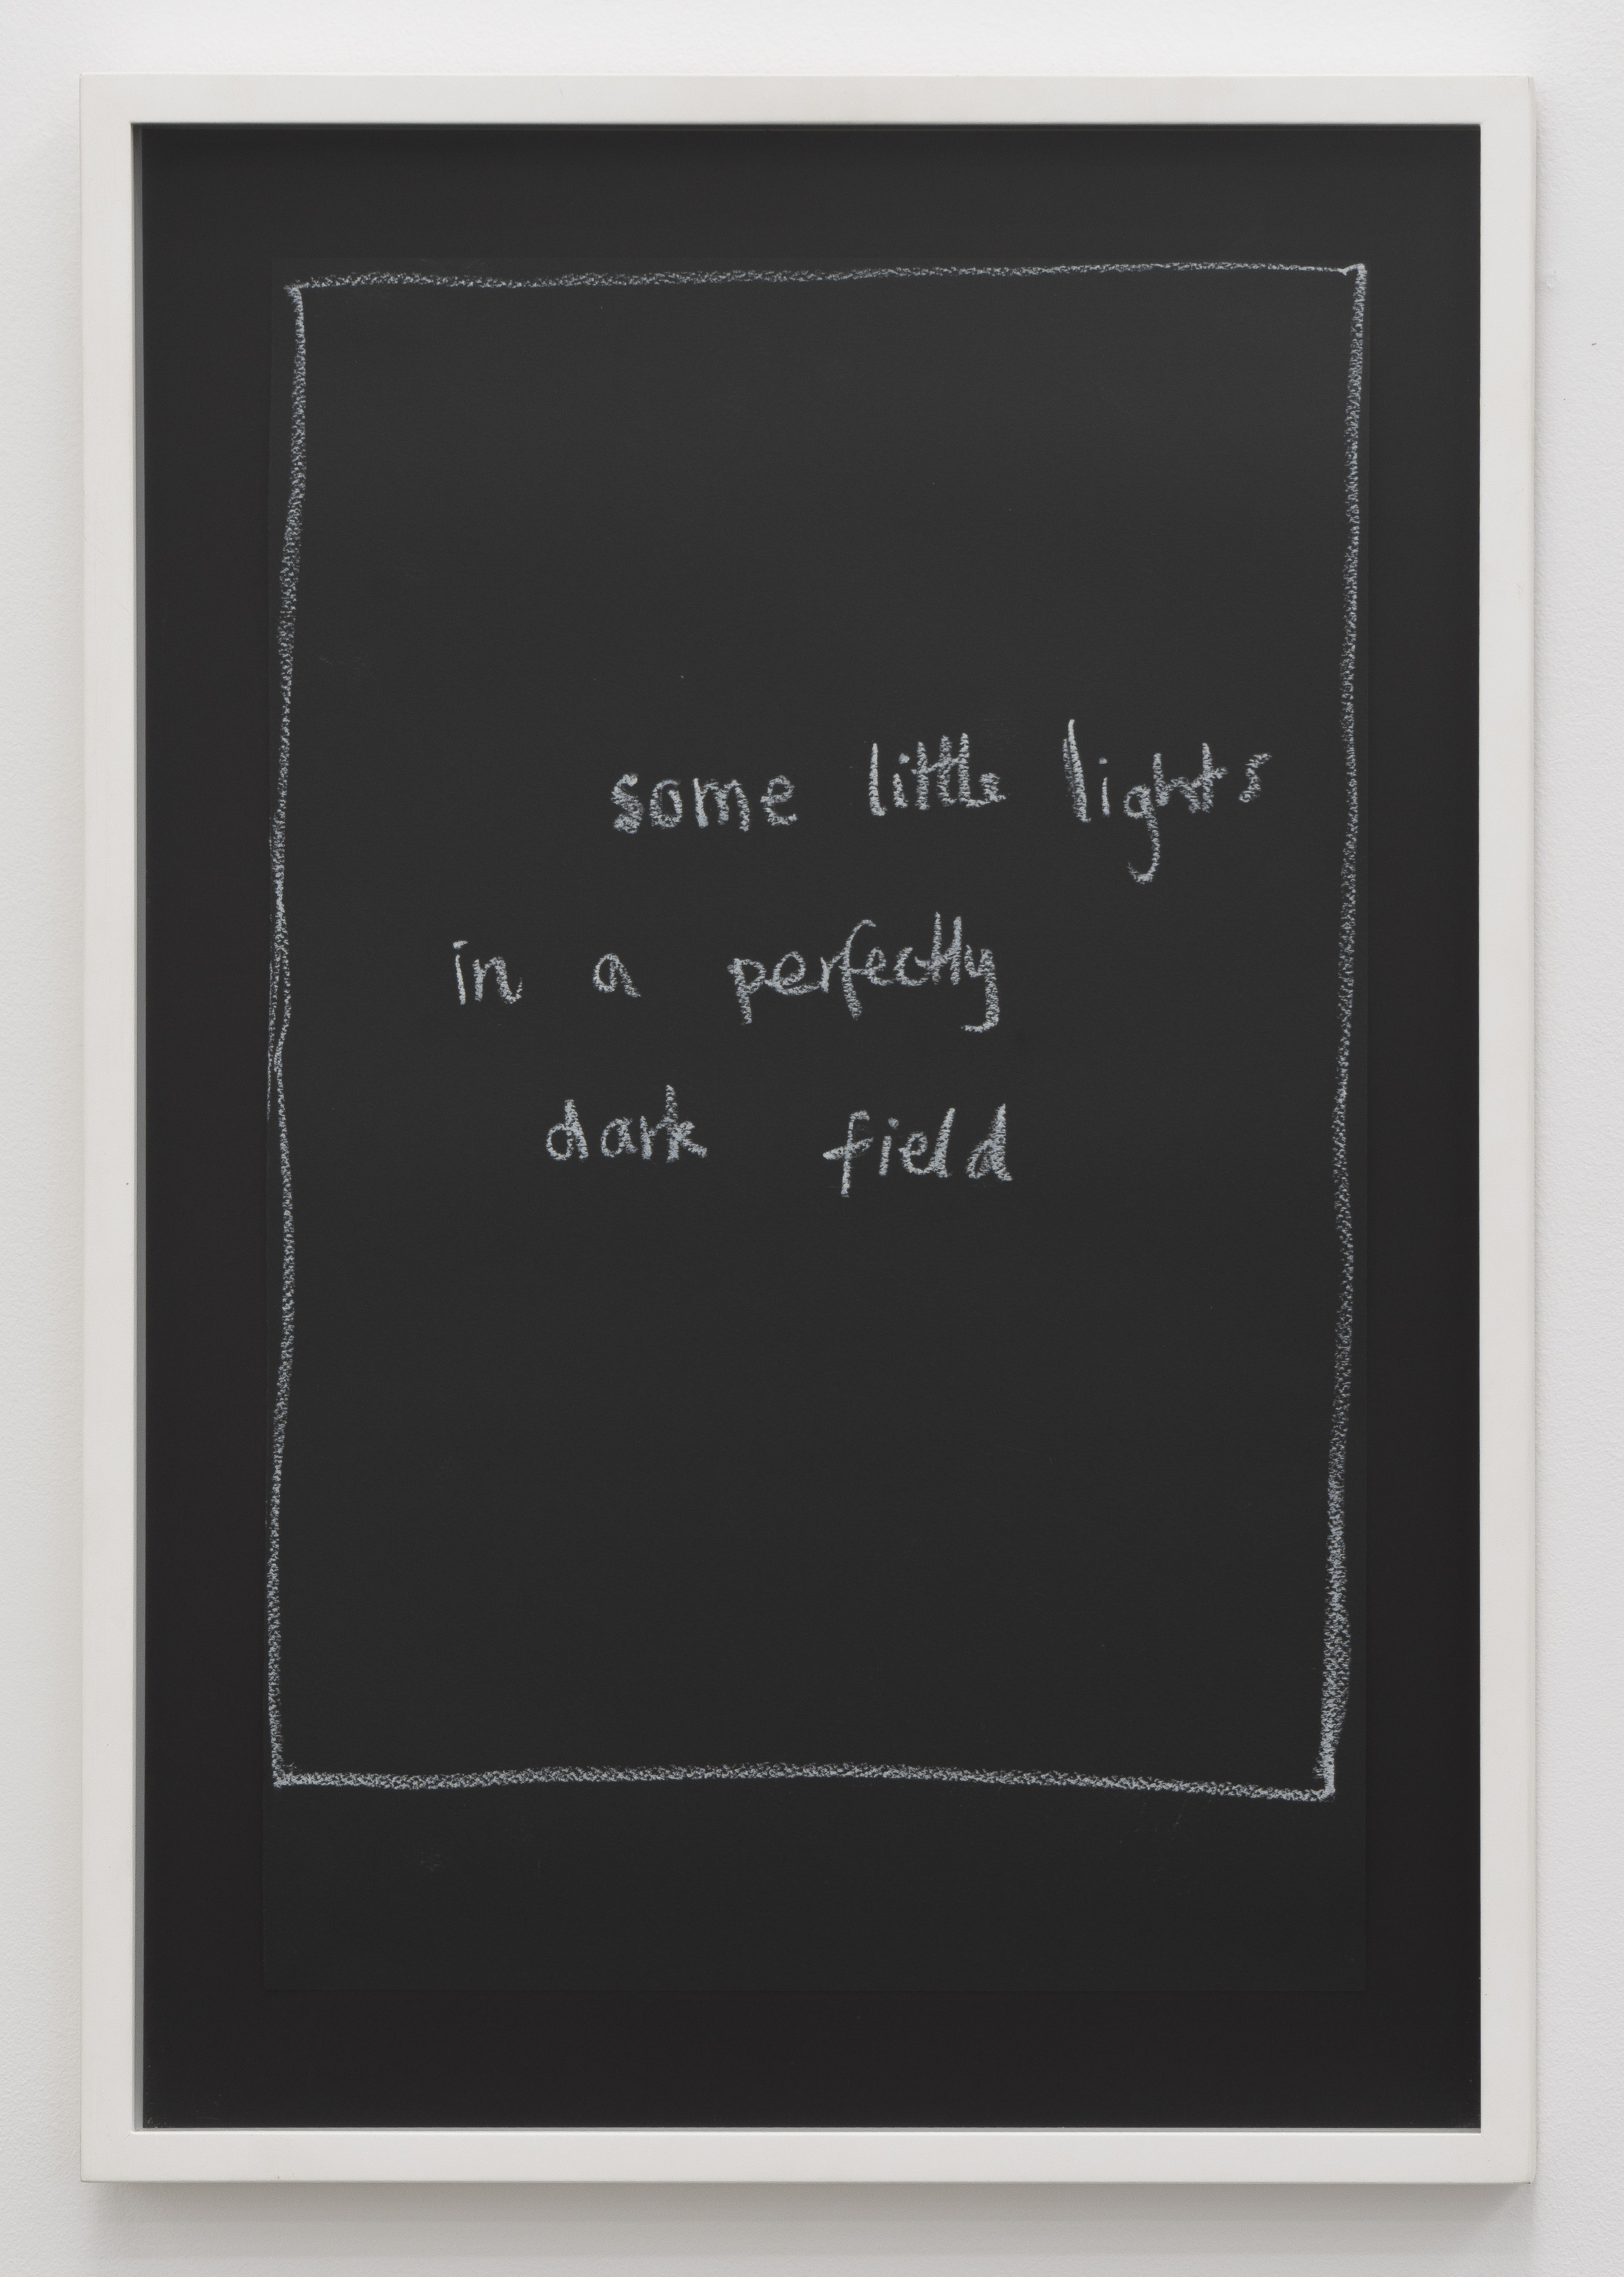 some little lights
in a perfectly
dark field